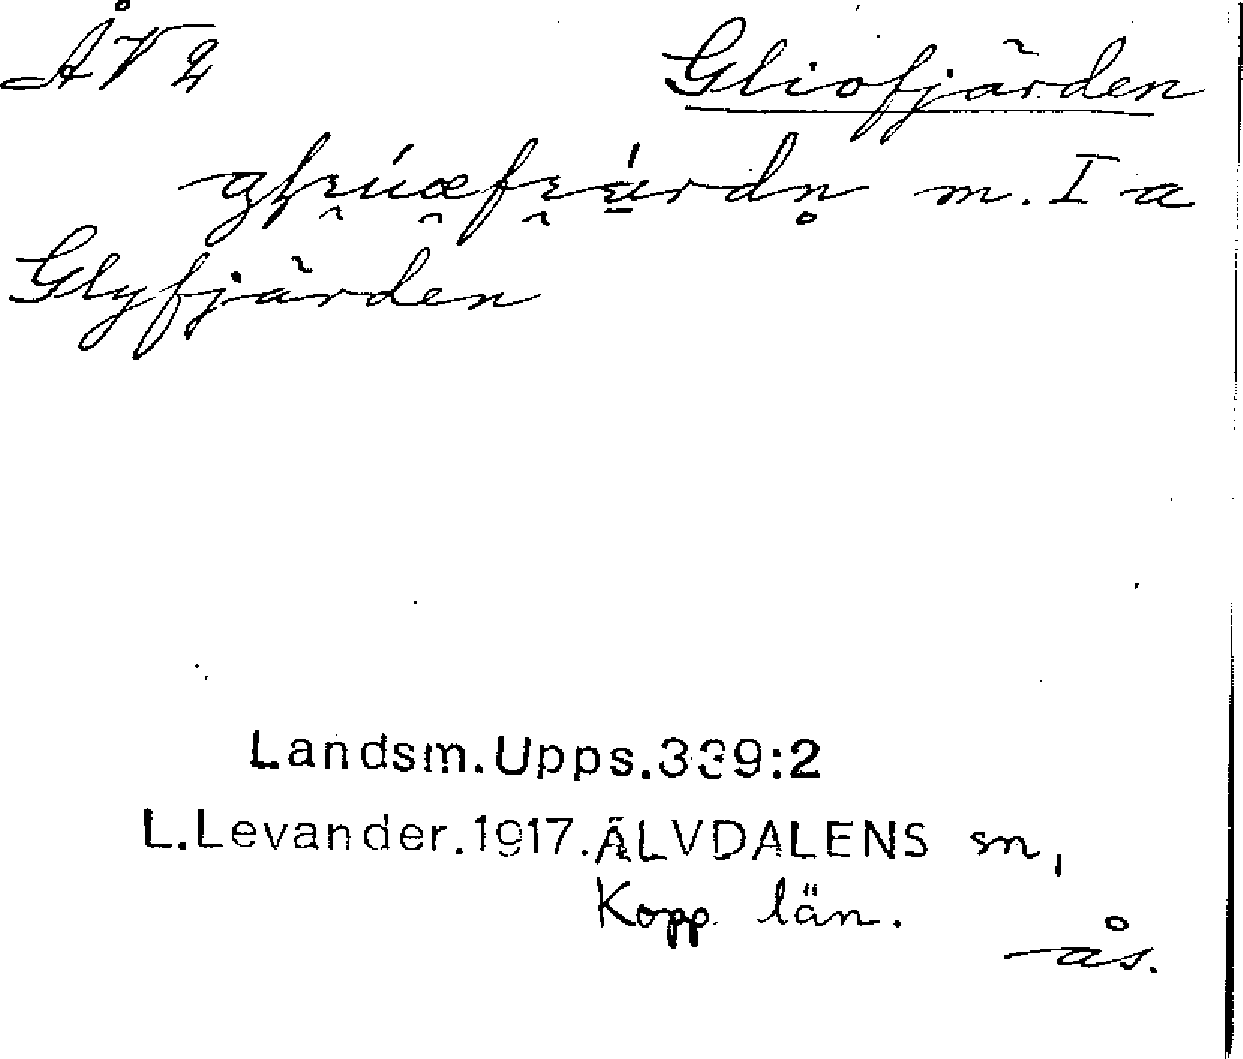 ÅV 2 Gliofjärden
m. I a
Glyfjärden
Landsm.Upps.339:2
L.Levander.1917.ÄLVDALENS sn,
Kopp. län.
ås.